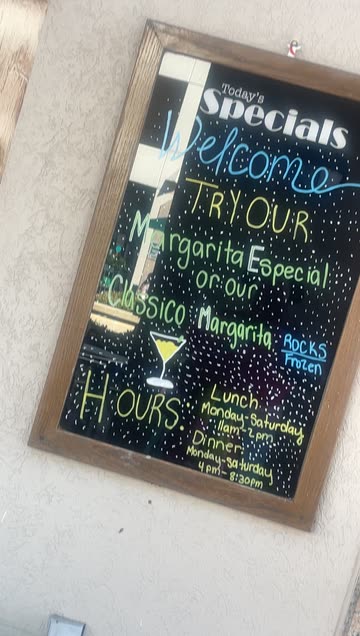 Today's
Specials
Welcome
TRY OUR
Margarita Especial
or our
Classico Margarita
ROCKS
Frozen
HOURS:
Lunch
Monday-Saturday
11am-2pm
Dinner
Monday-Saturday
4pm-8:30pm